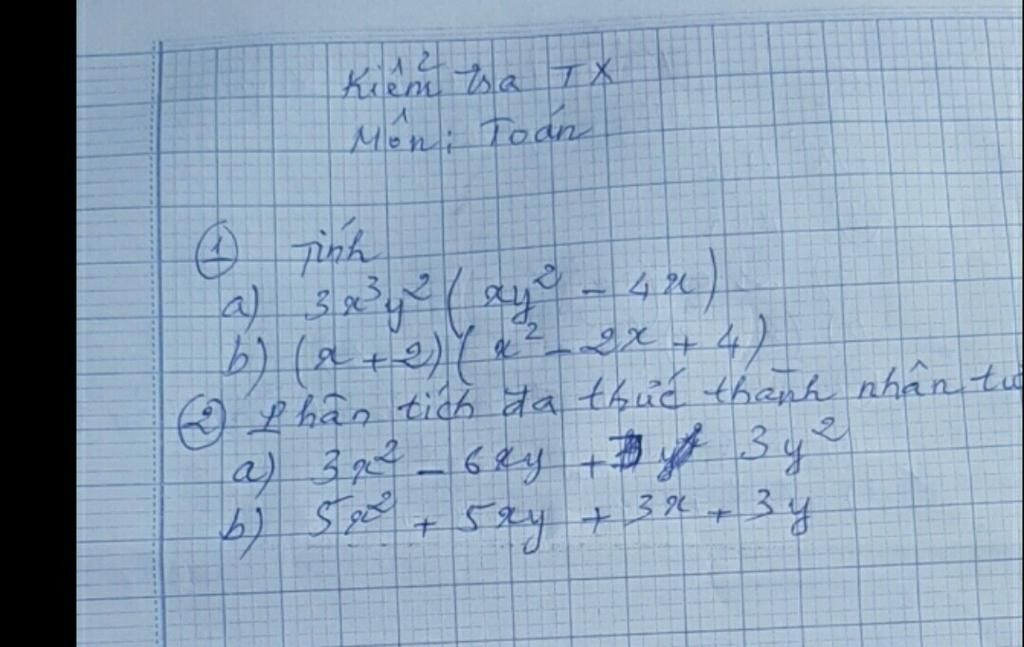 Kiểm tra TX
Môn: Toán
① Tính
a) 3x³y² (xy² - 4x)
b) (x + 2) (x² - 2x + 4)
② Phân tích đa thức thành nhân tử
a) 3x² - 6xy + 3y²
b) 5x² + 5xy + 3x + 3y